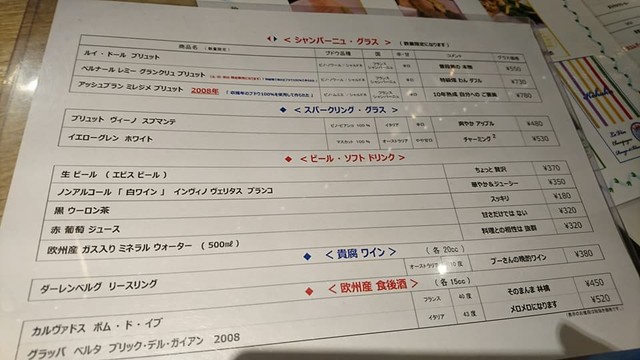 < シャンパーニュ・グラス > ( 数量限定になります )
商品名 ( 数量限定 ) ブドウ品種 国 辛・甘 コメント グラス価格
ルイ・ドール ブリュット ピノ・ノワール・シャルドネ フランス シャンパーニュ 辛口 ¥550
ベルナール レミー グランクリュ ブリュット ピノ・ノワール・シャルドネ フランス シャンパーニュ 辛口 特級畑 むん ダブル ¥730
アッシュブラン ミレジメ ブリュット 2008年 フランス シャンパーニュ 辛口 10年熟成 自分への ご褒美 ¥780
< スパークリング・グラス >
ブリュット ヴィーノ スプマンテ ピノ・ビアンコ 100 % イタリア 辛口 爽やか アップル ¥480
イエローグレン ホワイト マスカット 100 % オーストラリア やや甘口 チャーミング2 ¥530
< ビール・ソフト ドリンク >
生 ビール ( エビス ビール ) ちょっと 贅沢 ¥370
ノンアルコール 「 白ワイン 」 インヴィノ ヴェリタス ブランコ 華やか&ジューシー ¥350
黒 ウーロン茶 スッキリ ¥180
赤 葡萄 ジュース 甘さだけでは ない ¥320
欧州産 ガス入り ミネラル ウォーター ( 500㎖ ) 料理との相性は 抜群 ¥320
< 貴腐 ワイン > ( 各 20cc )
ダーレンベルグ リースリング オーストラリア 度 プーさんの晩酌ワイン ¥380
< 欧州産 食後酒 > ( 各 15cc )
カルヴァドス ポム・ド・イブ フランス 40 度 そのまんま 林檎 ¥450
グラッパ ベルタ ブリック・デル・ガイアン 2008 イタリア 43 度 メロメロになります ¥520